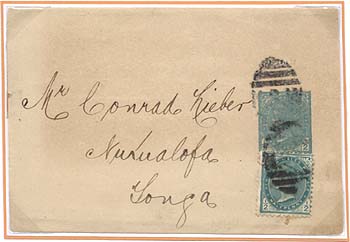 Mr Conrad Rieber
Nukualofa
Tonga